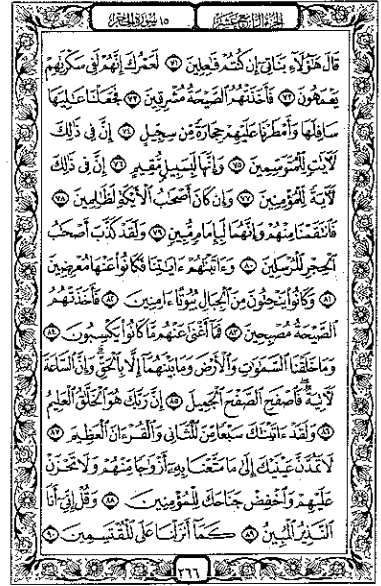 الجزء الرابع عشر
١٥ سورة الحجر
قَالَ هَٰٓؤُلَآءِ بَنَاتِىٓ إِن كُنتُمْ فَٰعِلِينَ ٧١ لَعَمْرُكَ إِنَّهُمْ لَفِى سَكْرَتِهِمْ
يَعْمَهُونَ ٧٢ فَأَخَذَتْهُمُ ٱلصَّيْحَةُ مُشْرِقِينَ ٧٣ فَجَعَلْنَا عَٰلِيَهَا
سَافِلَهَا وَأَمْطَرْنَا عَلَيْهِمْ حِجَارَةً مِّن سِجِّيلٍ ٧٤ إِنَّ فِى ذَٰلِكَ
لَءَايَٰتٍ لِّلْمُتَوَسِّمِينَ ٧٥ وَإِنَّهَا لَبِسَبِيلٍ مُّقِيمٍ ٧٦ إِنَّ فِى ذَٰلِكَ
لَءَايَةً لِّلْمُؤْمِنِينَ ٧٧ وَإِن كَانَ أَصْحَٰبُ ٱلْأَيْكَةِ لَظَٰلِمِينَ ٧٨
فَٱنتَقَمْنَا مِنْهُمْ وَإِنَّهُمَا لَبِإِمَامٍ مُّبِينٍ ٧٩ وَلَقَدْ كَذَّبَ أَصْحَٰبُ
ٱلْحِجْرِ ٱلْمُرْسَلِينَ ٨٠ وَءَاتَيْنَٰهُمْ ءَايَٰتِنَا فَكَانُوا۟ عَنْهَا مُعْرِضِينَ
٨١ وَكَانُوا۟ يَنْحِتُونَ مِنَ ٱلْجِبَالِ بُيُوتًا ءَامِنِينَ ٨٢ فَأَخَذَتْهُمُ
ٱلصَّيْحَةُ مُصْبِحِينَ ٨٣ فَمَآ أَغْنَىٰ عَنْهُم مَّا كَانُوا۟ يَكْسِبُونَ ٨٤
وَمَا خَلَقْنَا ٱلسَّمَٰوَٰتِ وَٱلْأَرْضَ وَمَا بَيْنَهُمَآ إِلَّا بِٱلْحَقِّ ۗ وَإِنَّ ٱلسَّاعَةَ
لَءَاتِيَةٌ ۖ فَٱصْفَحِ ٱلصَّفْحَ ٱلْجَمِيلَ ٨٥ إِنَّ رَبَّكَ هُوَ ٱلْخَلَّٰقُ ٱلْعَلِيمُ
٨٦ وَلَقَدْ ءَاتَيْنَٰكَ سَبْعًا مِّنَ ٱلْمَثَانِى وَٱلْقُرْءَانَ ٱلْعَظِيمَ ٨٧
لَا تَمُدَّنَّ عَيْنَيْكَ إِلَىٰ مَا مَتَّعْنَا بِهِۦٓ أَزْوَٰجًا مِّنْهُمْ وَلَا تَحْزَنْ
عَلَيْهِمْ وَٱخْفِضْ جَنَاحَكَ لِلْمُؤْمِنِينَ ٨٨ وَقُلْ إِنِّىٓ أَنَا
ٱلنَّذِيرُ ٱلْمُبِينُ ٨٩ كَمَآ أَنزَلْنَا عَلَى ٱلْمُقْتَسِمِينَ ٩٠
٢٦٦